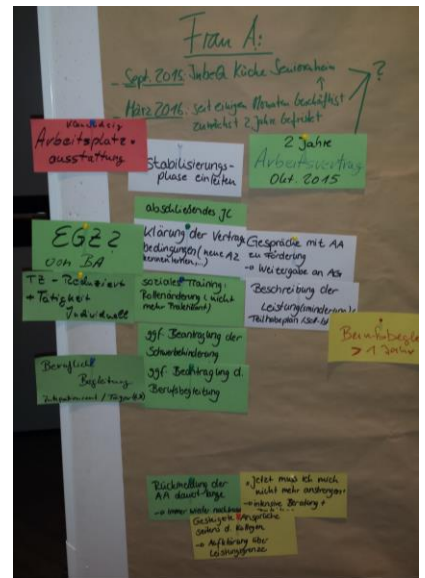 Frau A:
- Sept. 2015: InbeQ Küche Seniorenheim
- März 2016: seit einigen Monaten beschäftigt
zunächst 2 Jahre befristet
?
Arbeitsplatz-
ausstattung
Stabilisierungs-
phase einleiten
2 Jahre
Arbeitsvertrag
Okt. 2015
abschließendes
EGZ?
von BA
Klärung der Vertrags
bedingungen (neue AZ
Gespräche mit AA
zu Förderung
→ Weitergabe an AG
TZ - Reduziert
+ Tätigkeit
individuell
soziales Training:
Rollenänderung (nicht
mehr Praktikant)
Beschreibung der
Leistungsminderung
Teilhabeplan
ggf. Beantragung der
Schwerbehinderung
ggf. Beantragung d.
Berufsbegleitung
> 1 Jahr
Berufliche
Begleitung
Rückmeldung der
AA dauert lange
→ immer wieder
"Jetzt muss ich mich
nicht mehr anstrengen"
→ intensive Beratung +
Gesteigerte Ansprüche
seitens d. Kollegen
→ Aufklärung über
Leistungsgrenze